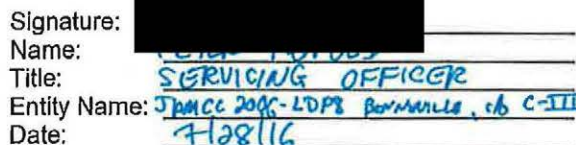 Signature:
Name:
Title: SERVICING OFFICER
Entity Name: JPMCC 2006-LDP8 c/o C-III
Date: 7/28/16